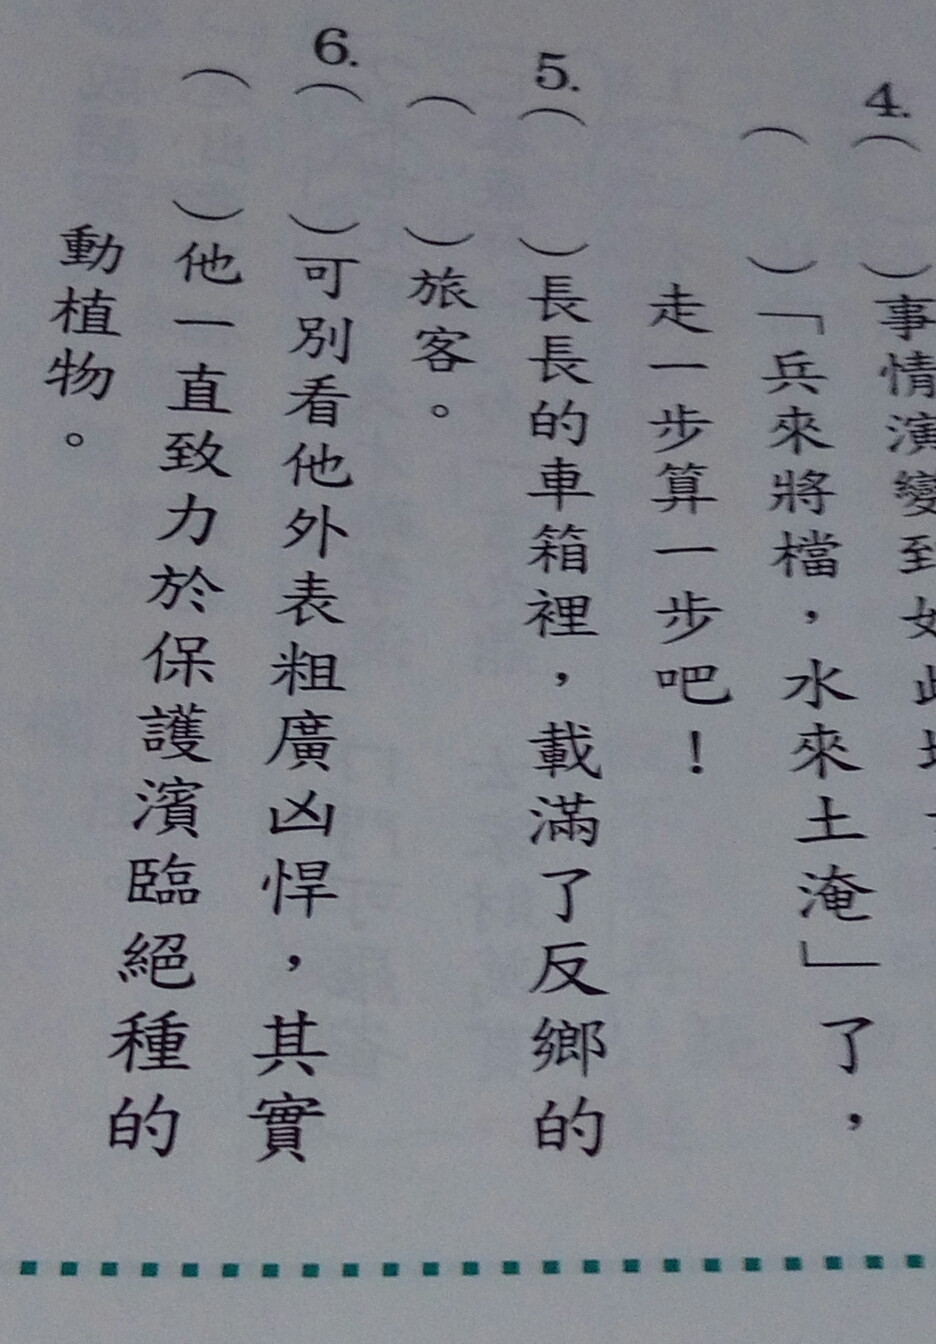 4.（　）事情演變到如此
（　）「兵來將檔，水來土淹」了，
走一步算一步吧！
5.（　）長長的車箱裡，載滿了反鄉的
（　）旅客。
6.（　）可別看他外表粗廣凶悍，其實
（　）他一直致力於保護濱臨絕種的
動植物。